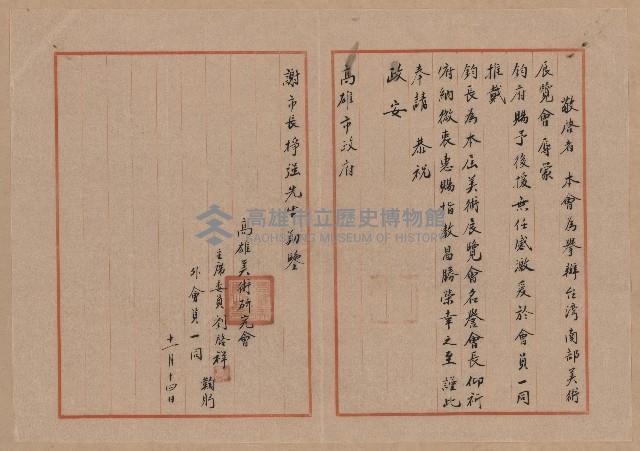 敬啓者 本會為舉辦台灣南部美術
展覽會辱蒙
鈞府賜予後援無任感激爰於會員一同
推戴
鈞長為本屆美術展覽會名譽會長仰祈
俯納微衷惠賜指教昌勝榮幸之至謹此
奉請 恭祝
政安
高雄市政府
謝市長掙强先生勛鑒
高雄美術研究會
主席委員劉啓祥
外會員一同 鞠躬
十一月十四日
高雄市立歷史博物館
KAOHSIUNG MUSEUM OF HISTORY